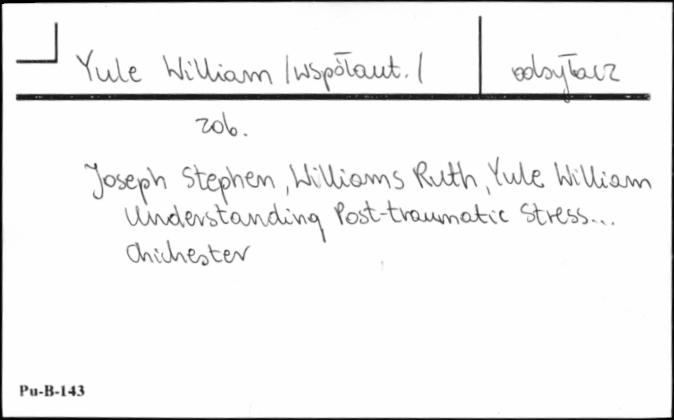 Yule William /współaut./ odsyłacz
zob.
Joseph Stephen, Williams Ruth, Yule William
Understanding Post-traumatic Stress...
Chichester
Pu-B-143